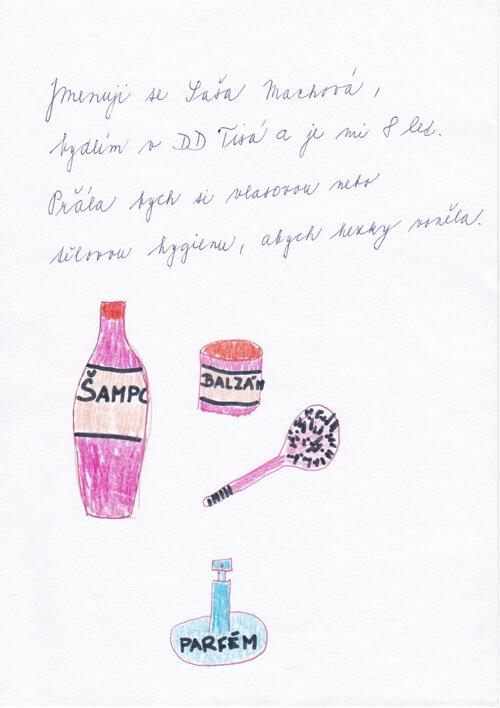 Jmenuji se Saša Machová,
bydlím v DD Tisá a je mi 8 let.
Přála bych si vlasovou nebo
tělovou hygienu, abych hezky voněla.
ŠAMPO
BALZÁM
PARFÉM